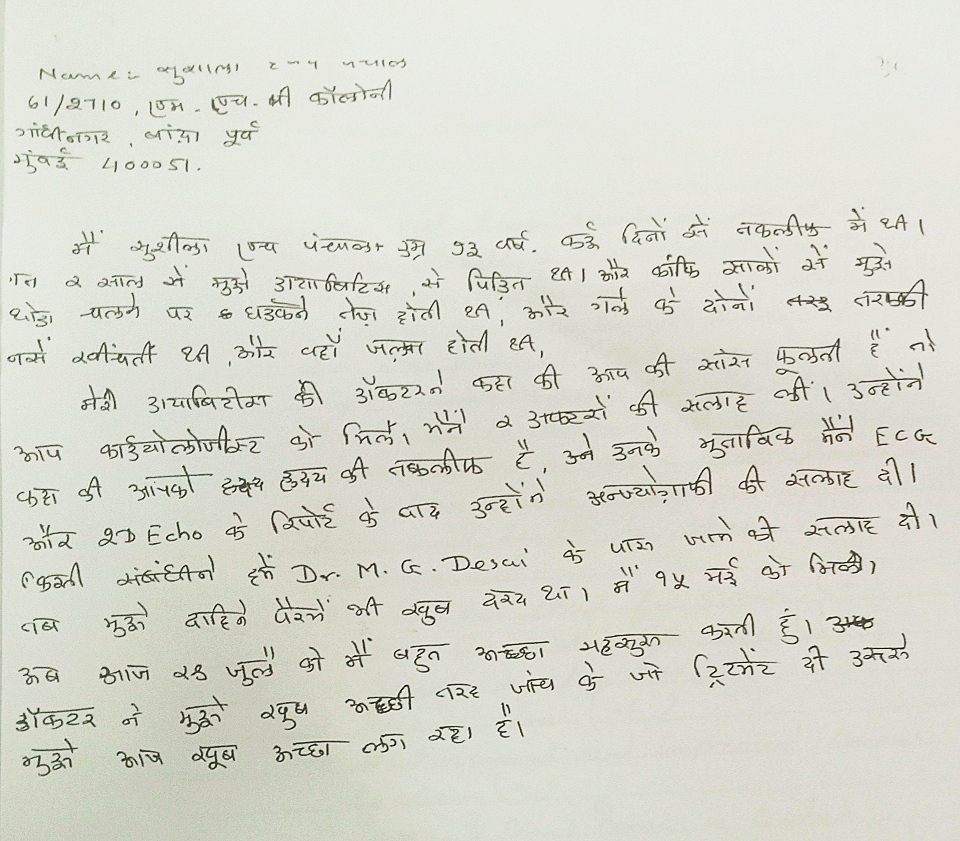 Name :- सुशीला एच पंचाल
61/2710, एम. एच. बी कॉलोनी
गांधीनगर, बांद्रा पूर्व
मुंबई 400051.
मैं सुशीला एच पंचाल उम्र ७३ वर्ष. कई दिनों सें तकलीफ में थी।
गत २ साल सें मुझे डायाबिटिस, से पिडित थी। और काफि सालों सें मुझे
थोडा चलने पर धडकने तेज़ होती थी, और गले के दोनों तरफकी
नसें खींचती थी, और वहाँ जलन होती थी,
मेरी डायाबिटीस की डॉकटरने कहा की आप की सांस फूलती हैं तो
आप कार्डयोलोजीस्ट को मिले। मैंने २ डाकटरों की सलाह ली। उन्होंने
कहा की आपको हृदय की तकलीफ है, उने उनके मुताबिक मैंने ECG
और 2D Echo के रिपोर्ट के बाद उन्होंने अन्ज्योग्राफी की सलाह दी।
किसी संबंधीने हमें Dr. M. G. Desai के पास जाने की सलाह दी।
तब मुझे दाहिने पैरमें भी खुब दरद था। मैं १५ मई को मिली।
अब आज २४ जुलै को मैं बहुत अच्छा महसुस करती हुं।
डॉकटर ने मुझे खुब अच्छी तरह जांच के जो ट्रिटमेंट दी उससे
मुझे आज खूब अच्छा लग रहा है।